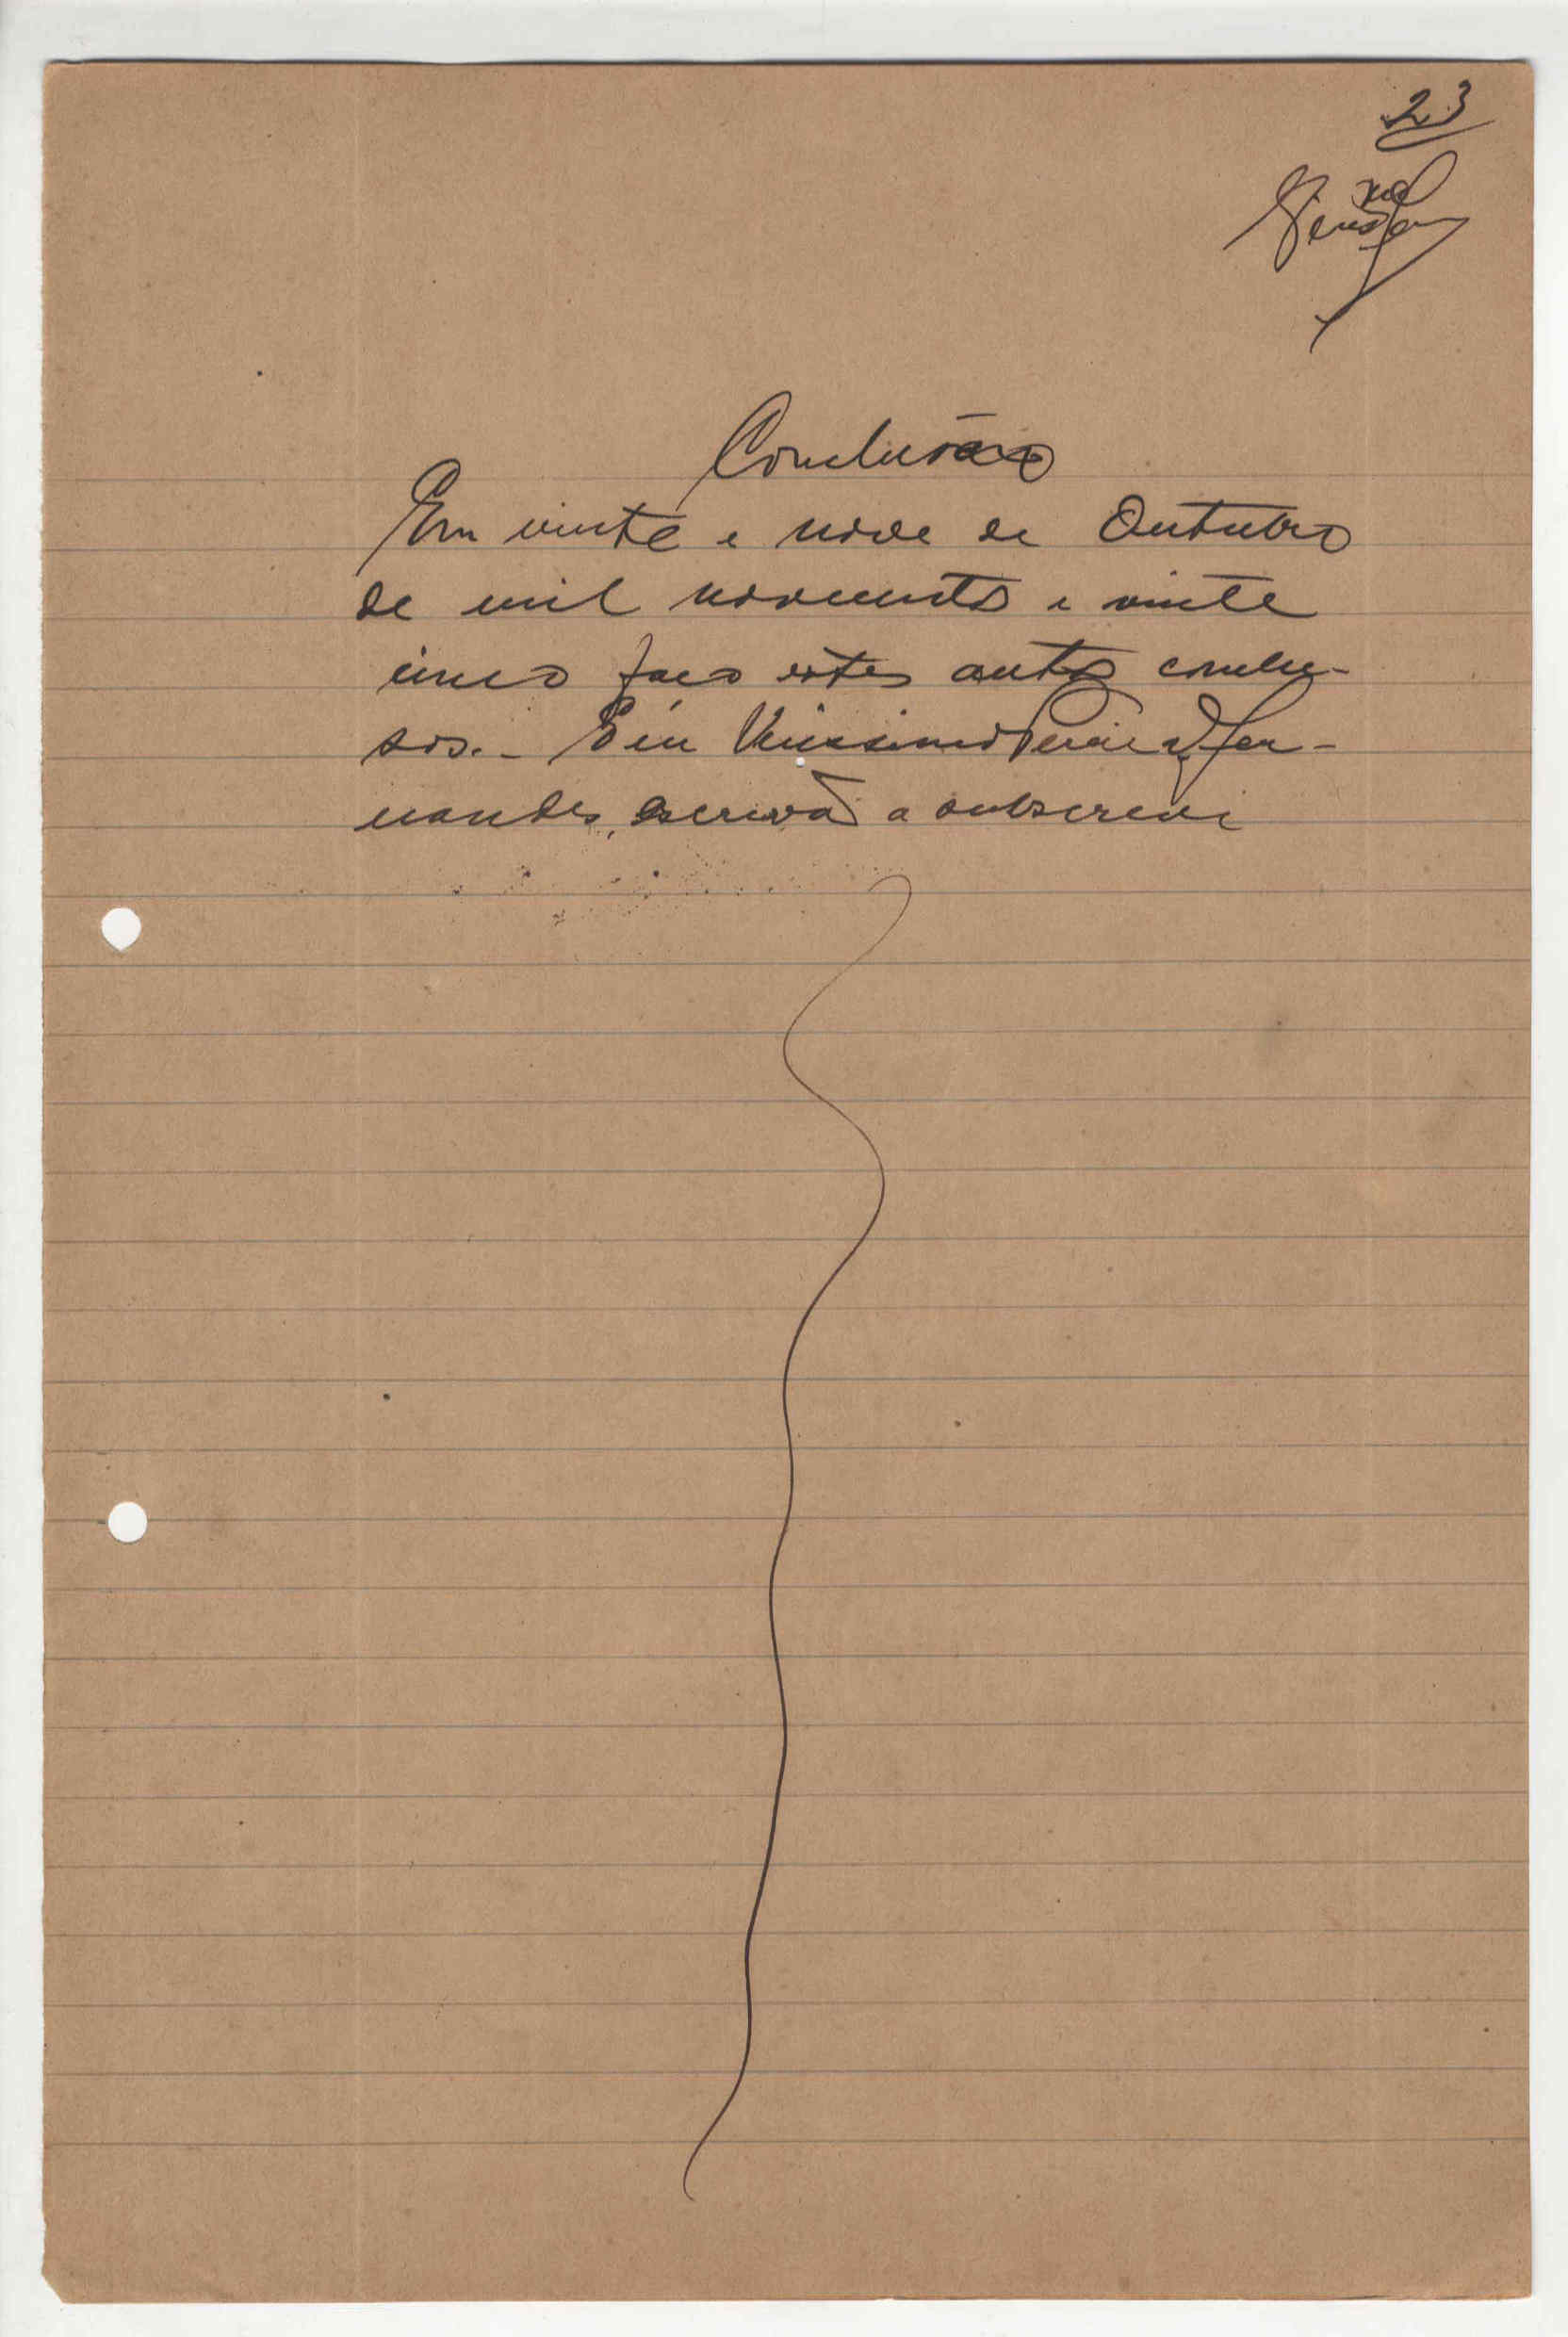 23
Conclusão
Em vinte e nove de Outubro
de mil novecentos e vinte
cinco faço estes autos conclu-
sos.- Eu Verissimo Pereira Fer-
nandes, escrivão a subscrevi